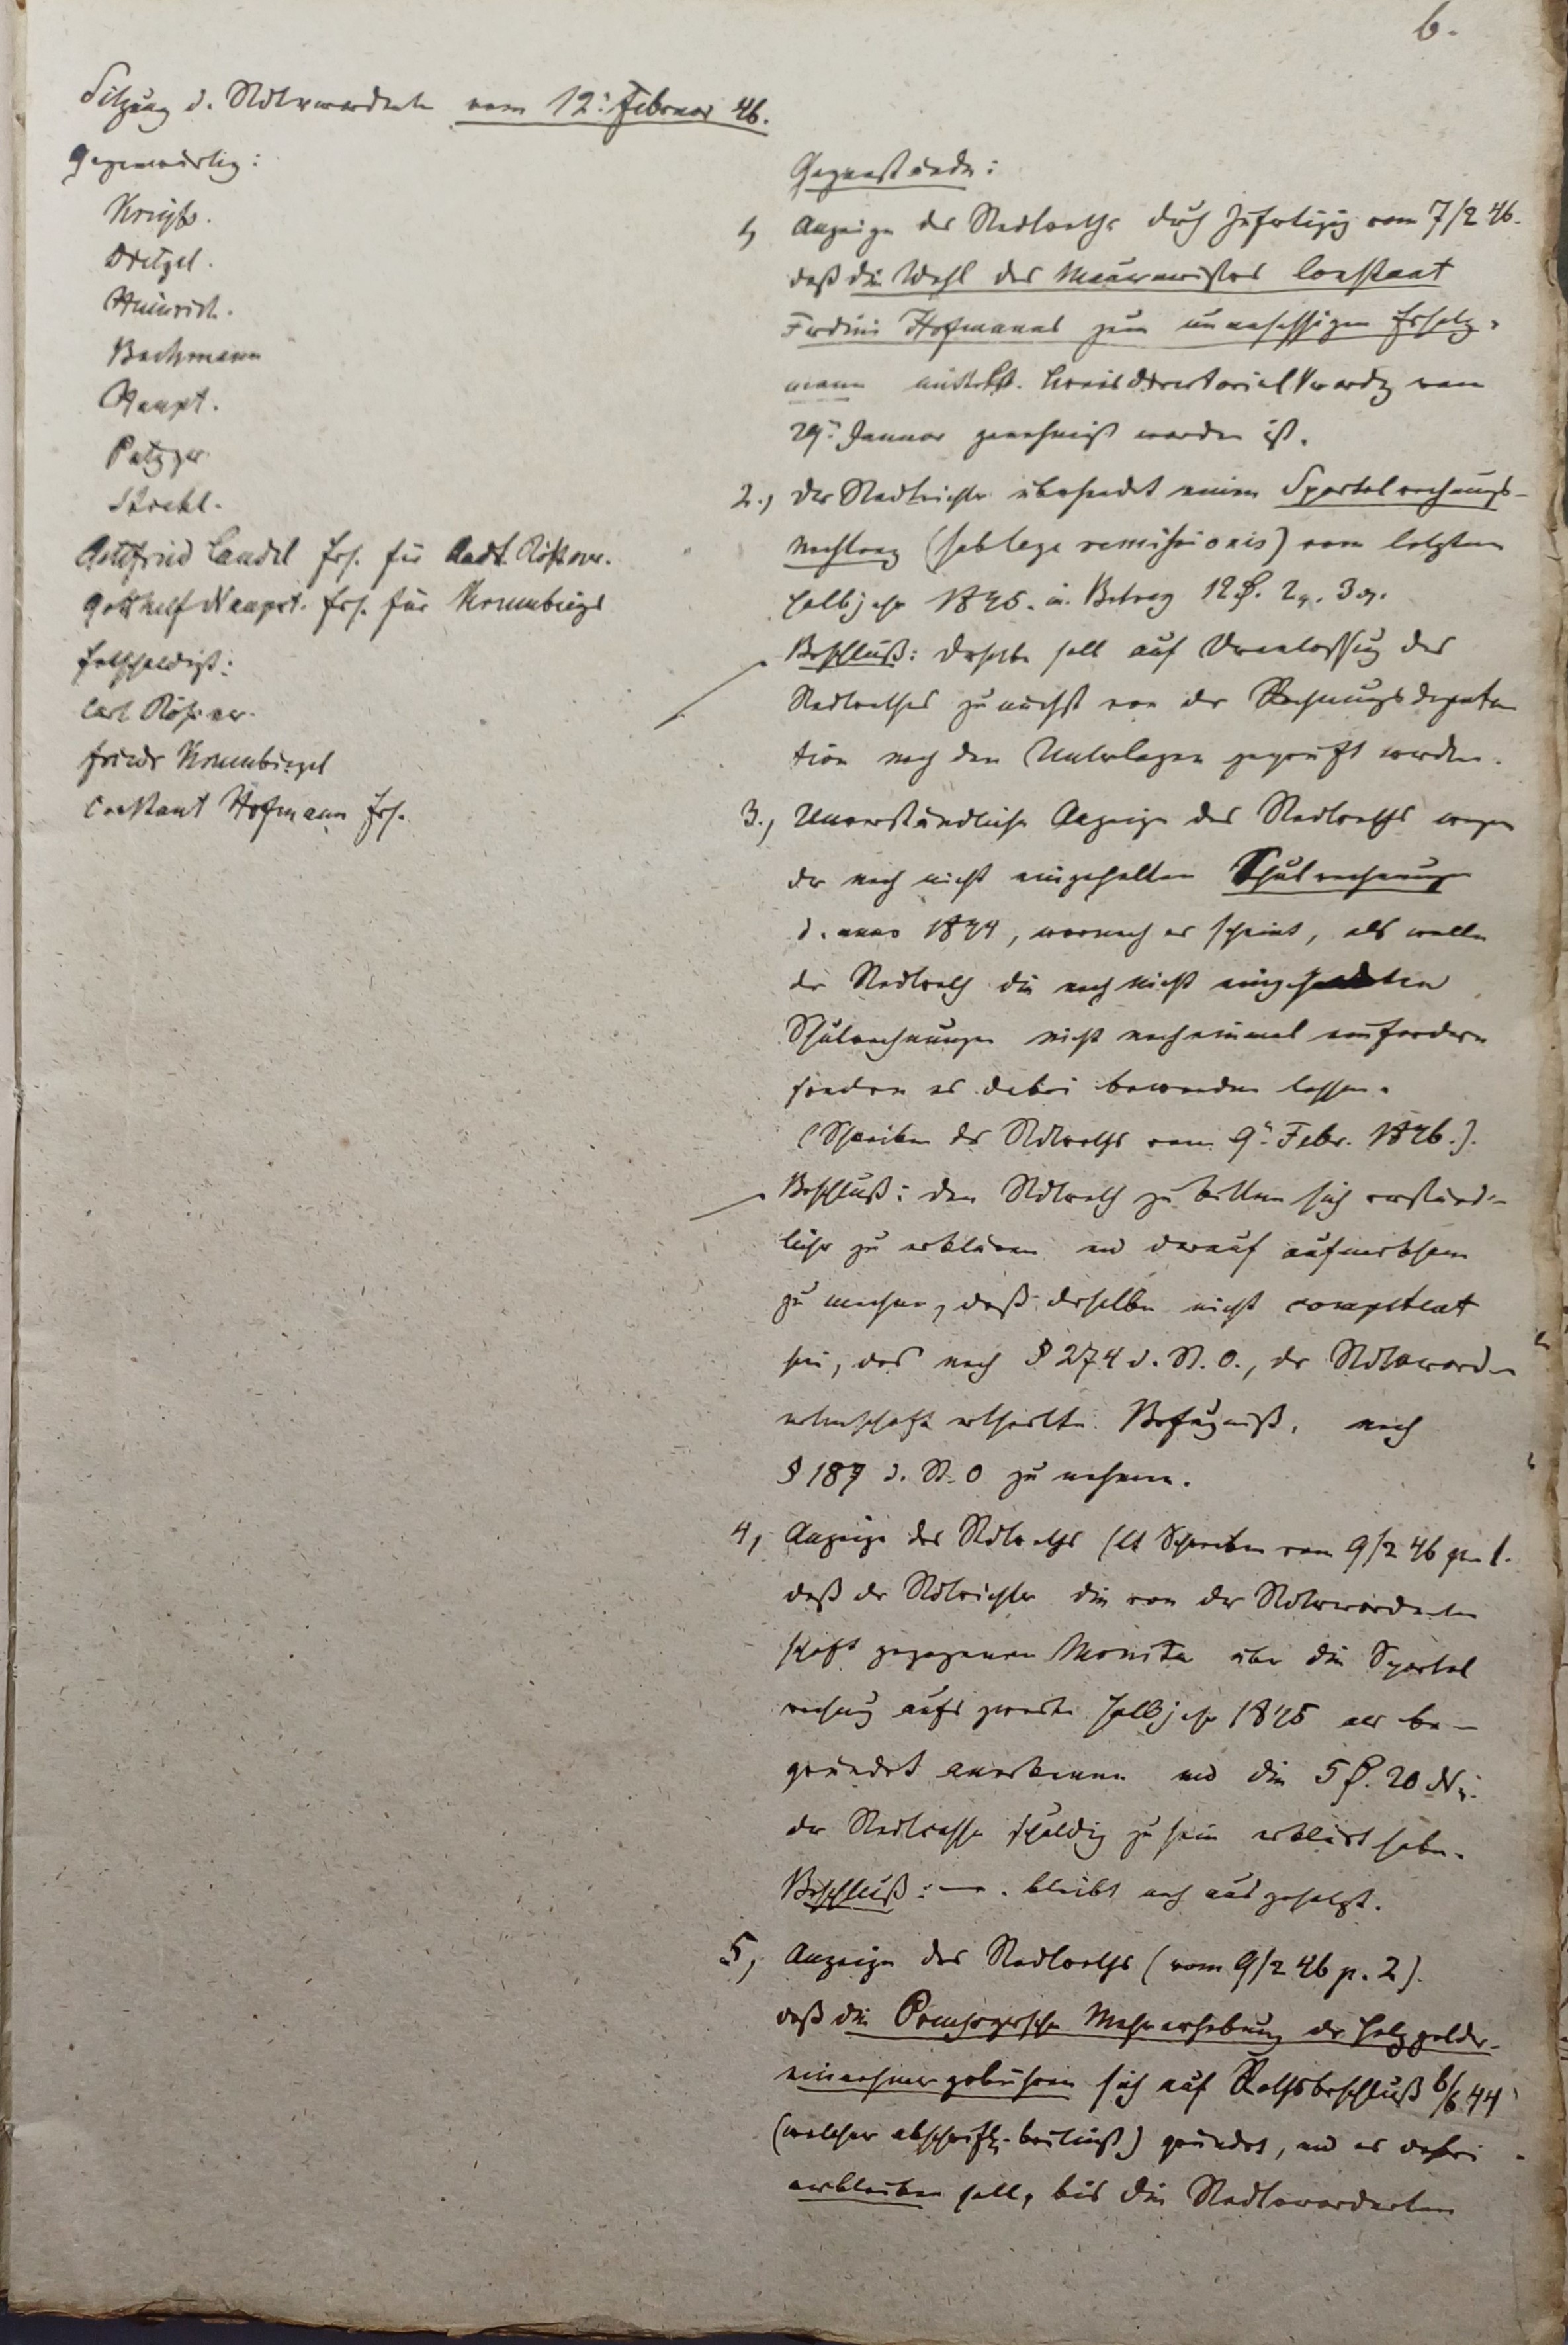 6.
Sitzung d. Stdtverordneten vom 12: Februar 46.
Gegenwärtig:
Dietzel.
Heinrich.
Bachmann
Haupt.
Patzger
Strobl.
Gottfried Candel Ers. für Rößner.
Gotthelf Naupert. Ers. für Krumbiegel
Entschuldigt:
Carl Rößner.
Friedr Krumbiegel
Constant Hofmann Ers.
Gegenstände:
1, Anzeige des Stadtraths durch Zufertigg vom 7/2 46.
daß die Wahl des Mauermeisters Constant
Ferdin: Hofmanns zum unansässigen Ersatz-
mann Kreisdirectorial Verordg vom
29: Januar genehmigt worden ist.
2., Der Stadtrichter übersendet einen Sportelrechnungs-
nachtrag (sub lege remissionis) vom letzten
Halbjahr 1845. im Betrag 12 ₰. 2 3
Beschluß: derselbe soll auf Veranlassung des
Stadtrathes zunächst von der Rechnungsdeputa
tion nach den Unterlagen geprüft werden.
3., Unverständliche Anzeige des Stadtraths wegen
der noch nicht eingehalten Schulrechnung
d. anno 1844, wornach es scheint, als wolle
der Stadtrath die noch nicht eingesendeten
Schulrechnungen nicht noch einmal einfordern
sondern es dabei bewenden lassen.
(Schreiben des Stdtraths vom 9: Febr. 1846.).
Beschluß: den Stdtrath zu bitten sich verständ-
licher zu erklären und darauf aufmerksam
zu machen, daß derselbe nicht competent
sei, das nach § 274 d. St. O., der Stdtverord-
netenschaft ertheilte Befugniß, nach
§ 187 d. St. O zu nehmen.
4, Anzeige des Stdtraths (lt Schreiben vom 9/2 46 p. 1.
daß der Stdtrichter die von der Stdtverordneten
schaft gezogenen Monita über die Sportel
rechnung aufs zweite Halbjahr 1845 als be-
gründet anerkennen und die 5 ₰. 20 N
der Stadtcasse schuldig zu sein erklärt habe.
Beschluß: —. bleibt noch ausgesetzt.
5, Anzeige des Stadtraths (vom 9/2 46 p. 2).
daß die Mehrerhebung der Holzgelder-
einnehmergebühren sich auf Rathsbeschluß 6/6 44
(welcher abschriftl. beiliegt) gründet, und es dabei
verbleiben soll, bis die Stadtverordneten